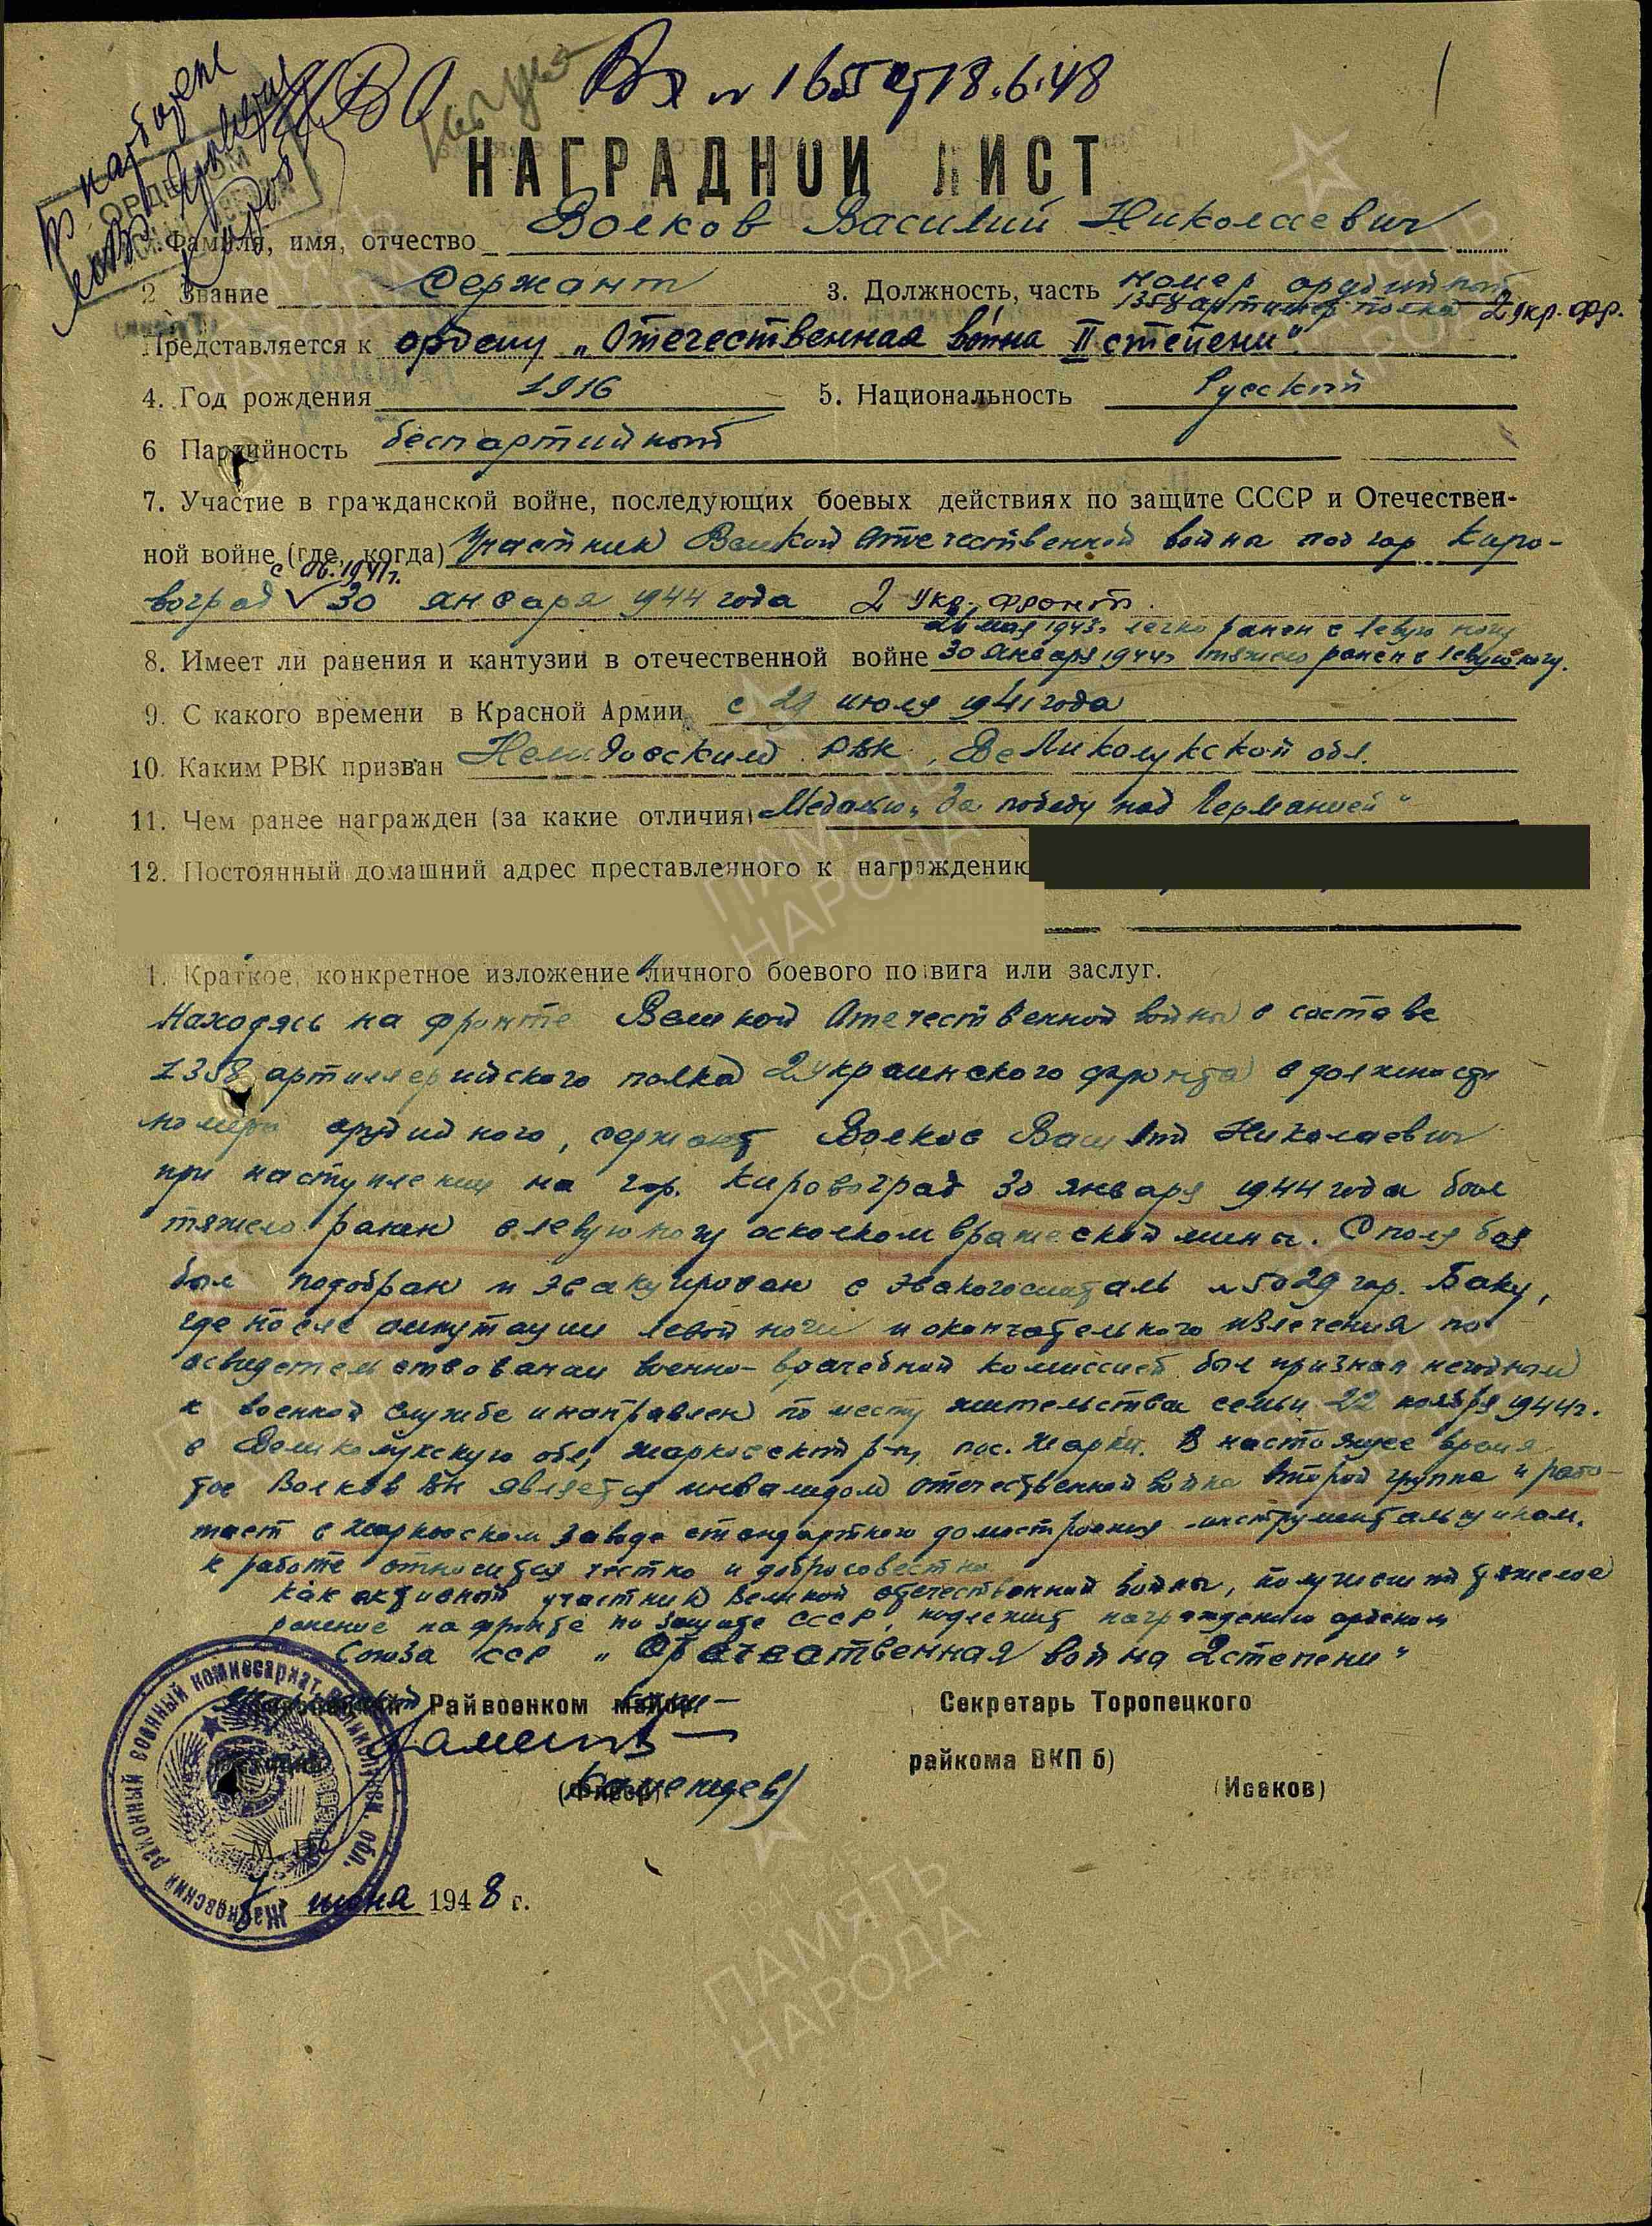 Вх № 1655 от 18.6.48
НАГРАДНОЙ ЛИСТ
1. Фамилия, имя, отчество Волков Василий Николаевич
2 Звание Сержант 3. Должность, часть номер орудийный
1358 артиллер. полка 2 укр. фр.
Представляется к ордену „Отечественная война II степени"
4. Год рождения 1916 5. Национальность Русский
6 Партийность беспартийный
7. Участие в гражданской войне, последующих боевых действиях по защите СССР и Отечествен-
ной войне (где, когда) Участник Великой Отечественной война под гор Кирo-
воград 30 января 1944 года 2 Укр. фронт.
26 мая 1943г легко ранен в левую ногу
8. Имеет ли ранения и кантузии в отечественной войне 30 января 1944г тяжело ранен в левую ногу.
9. С какого времени в Красной Армии с 29 июля 1941 года
10. Каким РВК призван Нелидовским РВК, Великолукской обл.
11. Чем ранее награжден (за какие отличия) Медалью „За победу над Германией"
12. Постоянный домашний адрес преставленного к награждению
1. Краткое, конкретное изложение личного боевого подвига или заслуг.
Находясь на фронте Великой Отечественной войны в составе
1358 артиллерийского полка 2 украинского фронта в должности
номера орудийного, сержант Волков Василий Николаевич
при наступлении на гор. Кировоград 30 января 1944 года был
тяжело ранен в левую ногу осколком вражеской мины. С поля боя
был подобран и эвакуирован в эвакогоспиталь №5029 гор. Баку,
где после ампутации левой ноги и окончательного излечения по
освидетельствовании военно-врачебной комиссией был признан негодным
к военной службе и направлен по месту жительства семьи 22 ноября 1944г.
в Великолукскую обл, Жарковский р-н, пос. Жарки. В настоящее время
тов Волков ВН является инвалидом отечественной война второй группа и рабо-
тает в Жарковском заводе стандартного домостроения инструментальщиком.
к работе относится честно и добросовестно
Как активный участник Великой отечественной войны, получивший тяжелое
ранение на фронте по защите СССР, подлежит награждению орденом
Союза ССР „Отечественная война 2 степени"
Райвоенком майор Секретарь Торопецкого
райкома ВКП б)
(Каменцев) (Исаков)
М. П.
июня 1948 г.
Жарковский районный военный комиссариат Великолукск. обл.
ПАМЯТЬ
НАРОДА